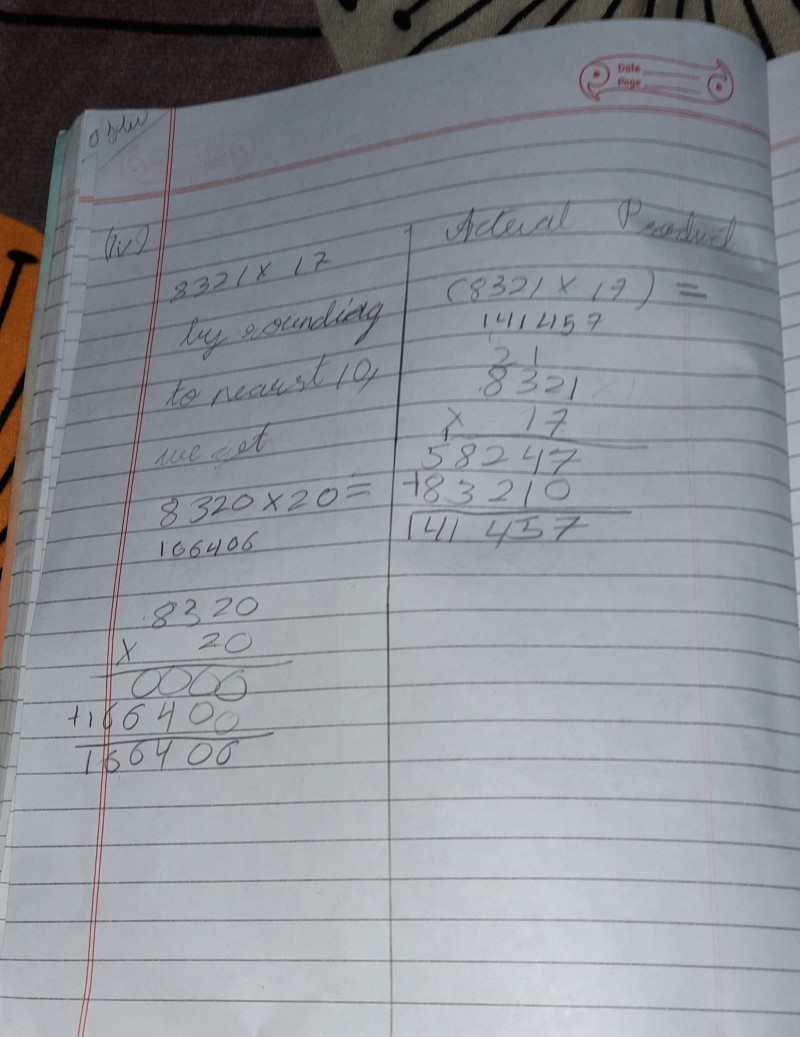 Date
Page
(iv)
8321 x 17
by rounding
to nearest 10,
we get
8320 x 20 =
166406
8320
x 20
0000
+166400
166406
Acteral Product
(8321 x 17) =
141457
21
8321
x 17
1
58247
+83210
141457